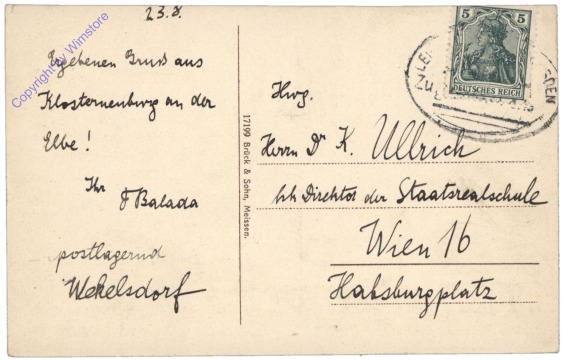 23.8.
Ergebenen Gruß aus
Klosterneuburg an der
Elbe!
Ihr
J Balada
postlagernd
Wekelsdorf
17199 Brück & Sohn, Meissen.
5 5
DEUTSCHES REICH
Hwg.
Herrn Dr K. Ullrich
kk Direktor der Staatsrealschule
Wien 16
Habsburgplatz
Copyright by Wimstore